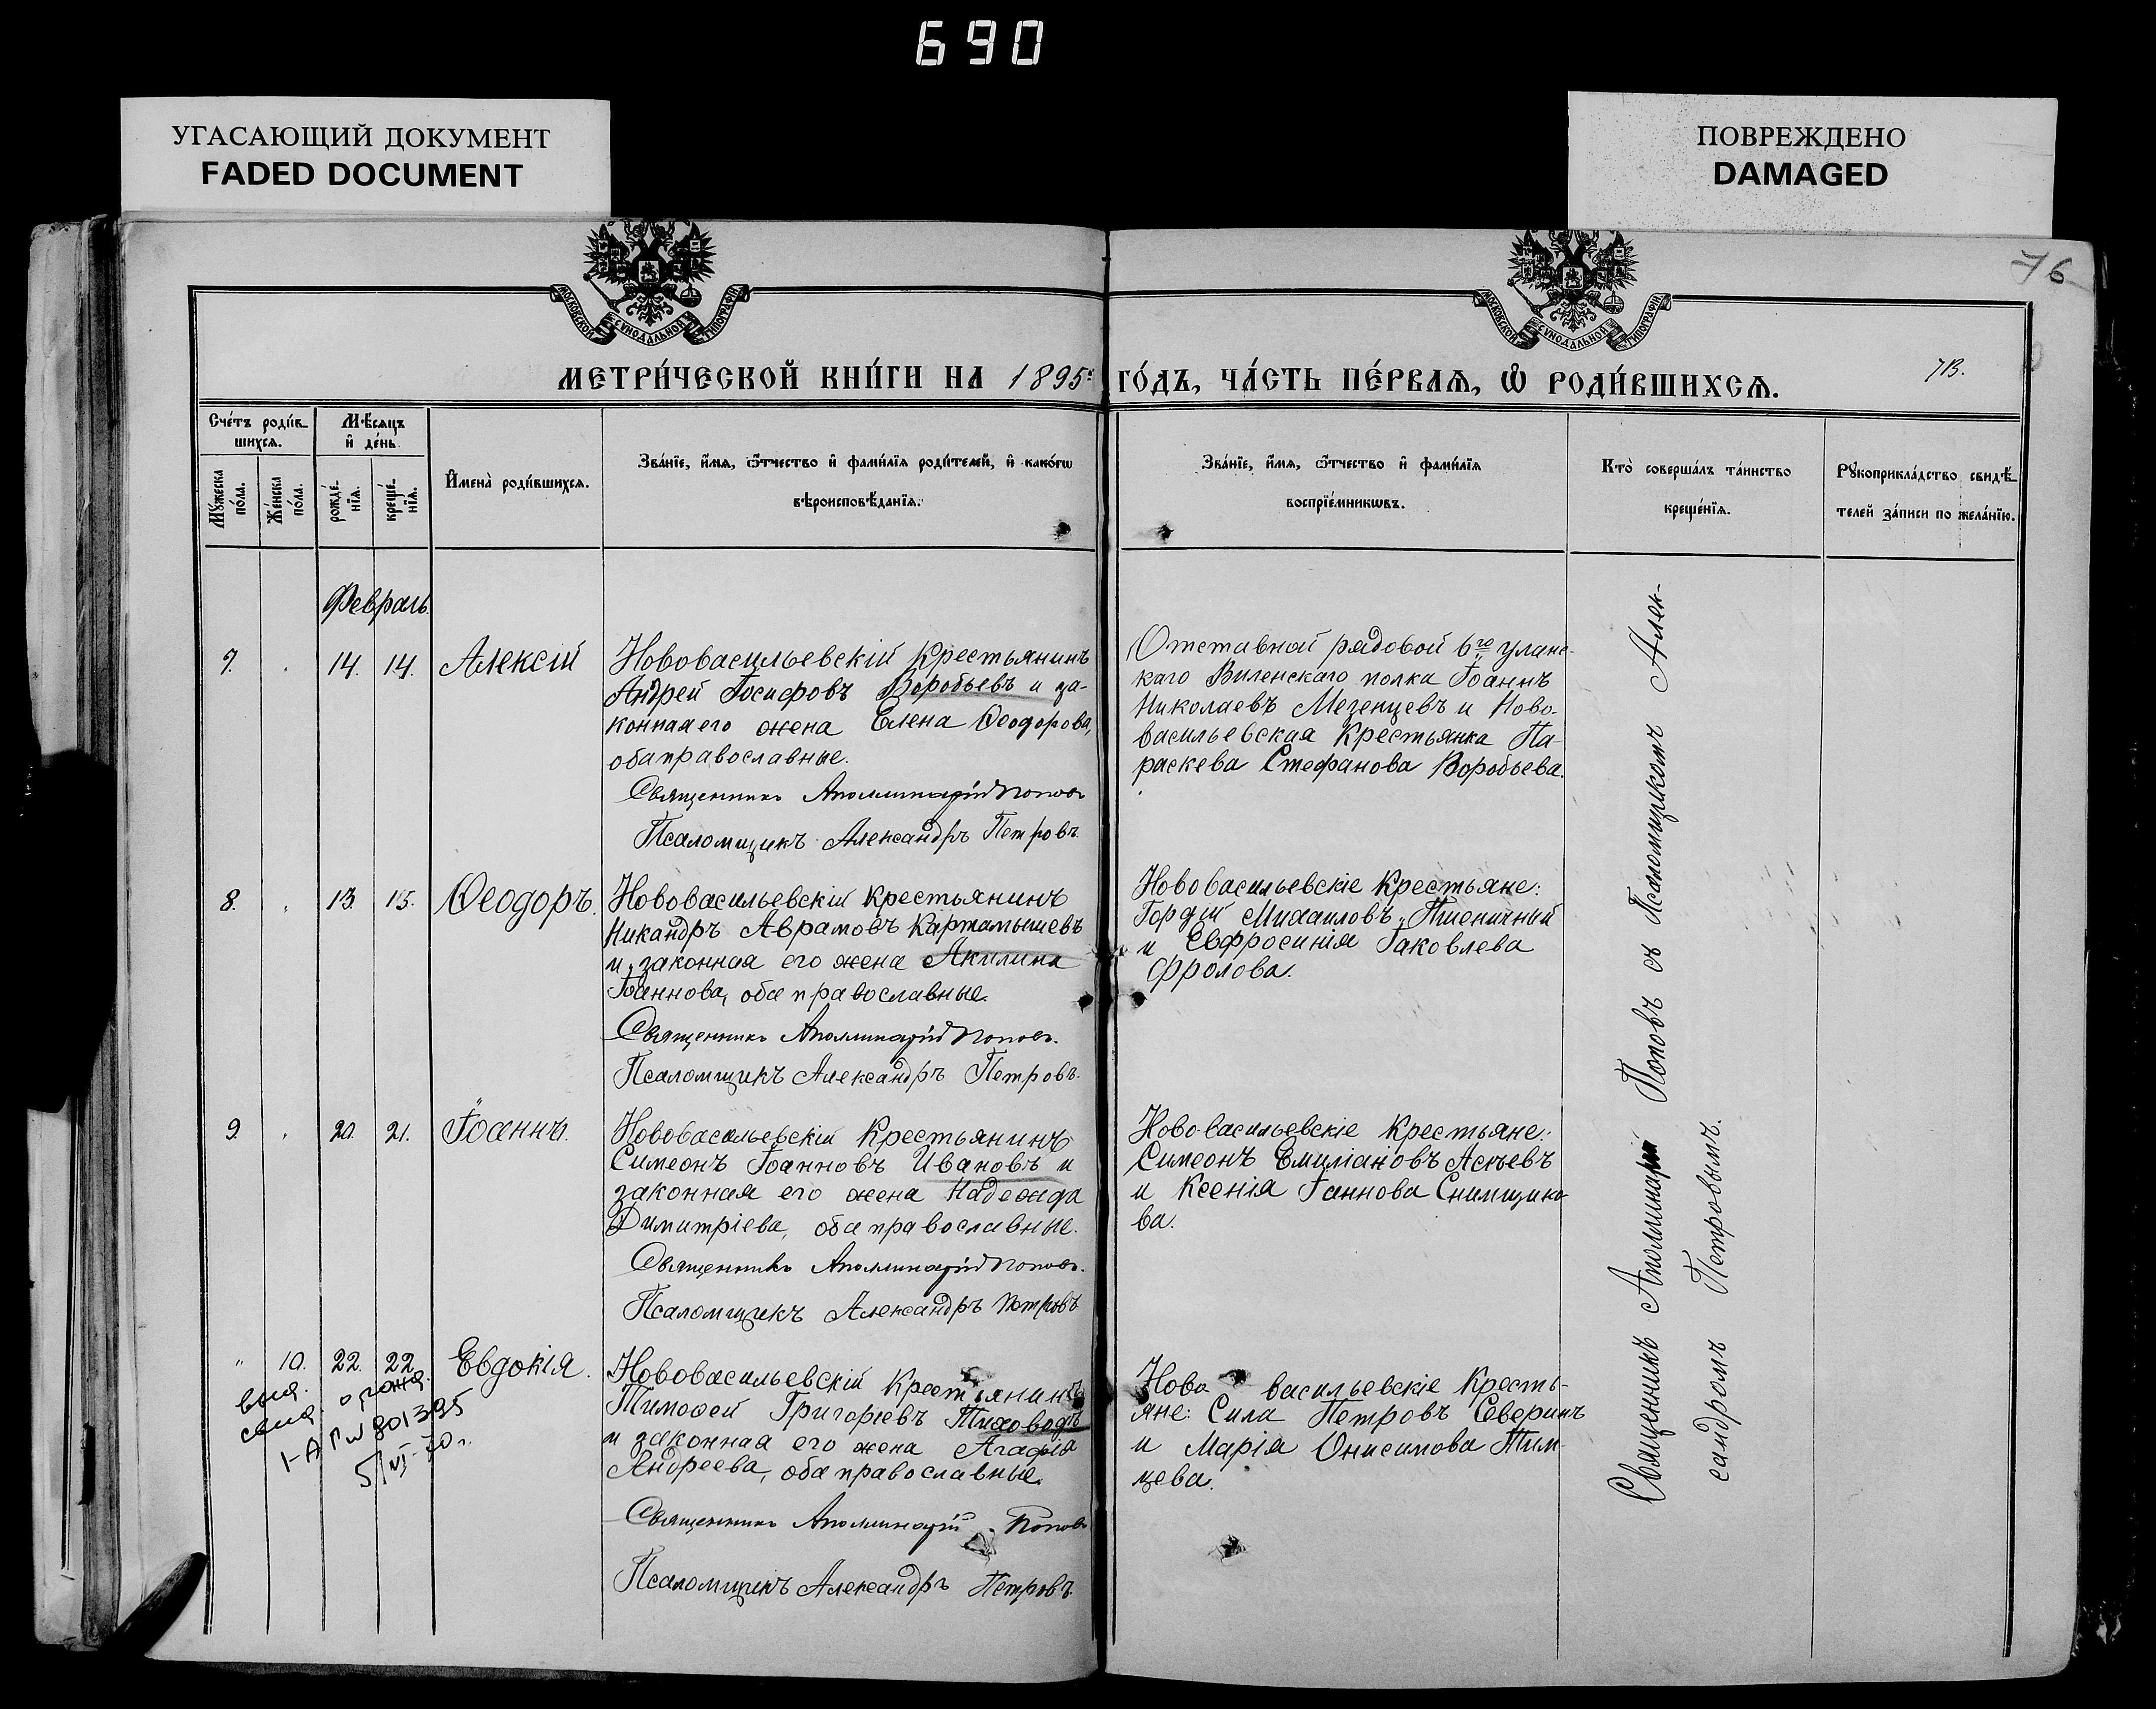 690
УГАСАЮЩИЙ ДОКУМЕНТ
FADED DOCUMENT
ПОВРЕЖДЕНО
DAMAGED
76
МОСКОВСКОЙ СѴНОДАЛЬНОЙ ТИПОГРАФІИ
МОСКОВСКОЙ СѴНОДАЛЬНОЙ ТИПОГРАФІИ
МЕТРИ́ЧЕСКОЙ КНИ́ГИ НА 1895й ГО́ДЪ, ЧА́СТЬ ПЕ́РВАЯ, Ѡ҆ РОДИ́ВШИХСЯ.
73.
Сче́тъ роди́в-
шихся.
Мѣ́сяцъ
и҆ де́нь.
Мꙋ́жеска
по́ла.
Же́нска
по́ла.
рожде́-
нїя.
креще́-
нїя.
И҆мена̀ роди́вшихся.
Зва́нїе, и҆́мя, ѻ҆́тчество и҆ фами́лїя роди́телей, и҆ како́гѡ
вѣроисповѣ́данїя.
Зва́нїе, и҆́мя, ѻ҆́тчество и҆ фами́лїя
воспрїе́мникѡвъ.
Кто̀ соверша́лъ та́инство
креще́нїя.
Рꙋкоприкла́дство свидѣ́-
телей за́писи по жела́нїю.
Февраль.
7.
14. 14.
Алексій
Нововасильевскій крестьянинъ
Андрей Іосифовъ Воробьевъ и за-
конная его жена Елена Ѳеодорова,
оба православные.
Священникъ Аполлинарій Поповъ
Псаломщикъ Александръ Петровъ
Отставной рядовой 6го улан-
скаго Виленскаго полка Іоаннъ
Николаевъ Мезенцевъ и Ново-
васильевская крестьянка Па-
раскева Стефанова Воробьева.
8.
13. 15.
Ѳеодоръ.
Нововасильевскій крестьянинъ
Никандръ Аврамовъ Картамышевъ
и законная его жена Акилина
Іоаннова, оба православные.
Священникъ Аполлинарій Поповъ.
Псаломщикъ Александръ Петровъ.
Нововасильевскіе крестьяне:
Гордій Михаиловъ Пшеничный
и Евфросинія Іаковлева
Фролова.
9.
20. 21.
Іоаннъ.
Нововасильевскій крестьянинъ
Симеонъ Іоанновъ Ивановъ и
законная его жена Надежда
Димитріева, оба православные.
Священникъ Аполлинарій Поповъ.
Псаломщикъ Александръ Петровъ
Нововасильевскіе крестьяне:
Симеонъ Емиліановъ
и Ксенія Іаннова
ва.
" 10. 22. 22.
Евдокія.
801395
Нововасильевскій крестьянинъ
Тимоѳей Григорьевъ Тиховодъ
и законная его жена Агафія
Андреева, оба православные.
Священникъ Аполлинарій Поповъ
Псаломщикъ Александръ Петровъ.
Ново васильевскіе кресть-
яне: Сила Петровъ Северинъ
и Марія Онисимова Тим-
цева.
Священникъ Аполлинарій Поповъ съ Псаломщикомъ Алек-
сандромъ Петровымъ.